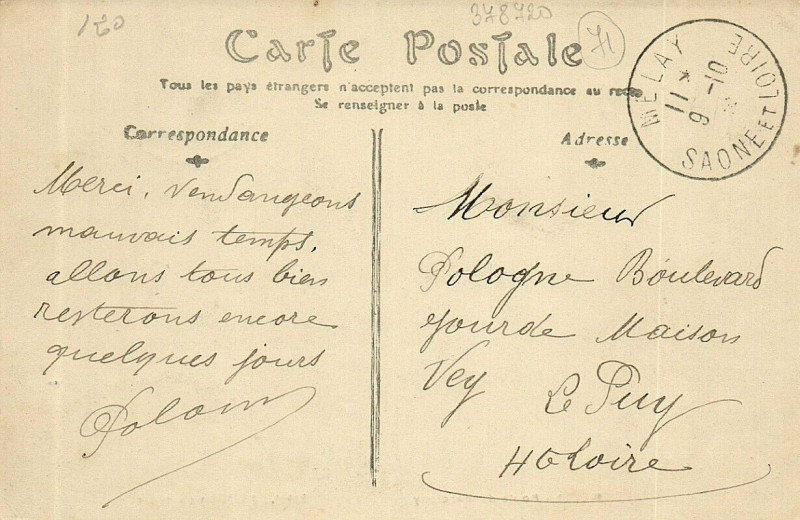 120
378720
71
Carte Postale
Tous les pays étrangers n'acceptent pas la correspondance au recto
Se renseigner à la poste
MELAY
11 *
9 -10
SAONE ET LOIRE
Correspondance
Adresse
Merci, Vendangeons
mauvais temps,
allons tous bien
resterons encore
quelques jours
Monsieur
Pologne Boulevard
Gourde Maison
Vey Le Puy
Hte Loire